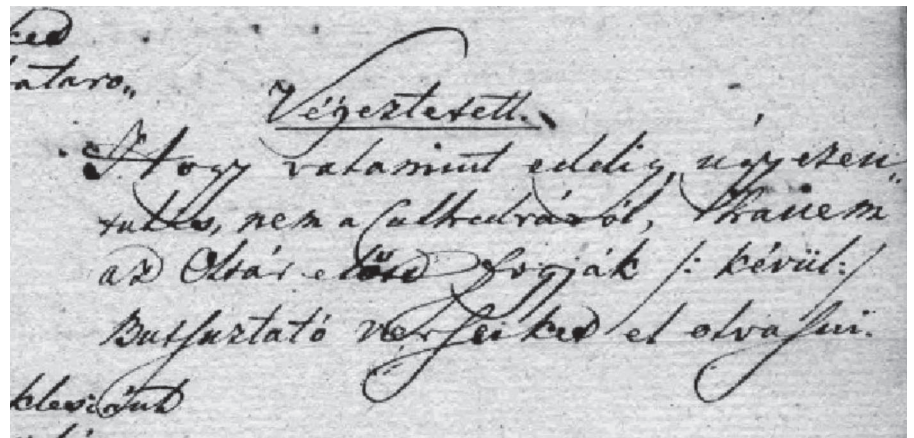 ked
hataro„
Végeztetett.
Hogy valamint eddig, úgy ezen„
tulis, nem a Cathedrából, Hanem
az Oltár előtt fogják /: kévül:/
Butsuztató verseiket el olvasni.